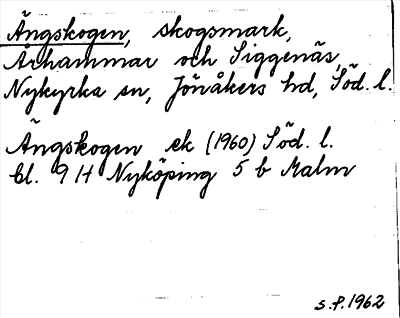 Ängskogen, skogsmark,
Århammar och Siggenäs,
Nykyrka sn, Jönåkers hd, Söd. l.
Ängskogen ek (1960) Söd. l.
bl. 9 H Nyköping 5 b Malm
S.P. 1962